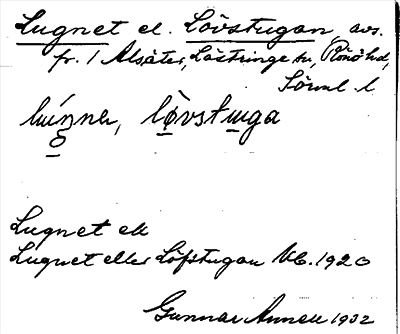 Lugnet el. Lövstugan, avs.
fr. 1 Alsäter, Lästringe sn, Rönö hd,
Sörml. l
lövstuga
Lugnet ell
Lugnet eller Löfstugan Kb. 1920
Gunnar Annell 1932